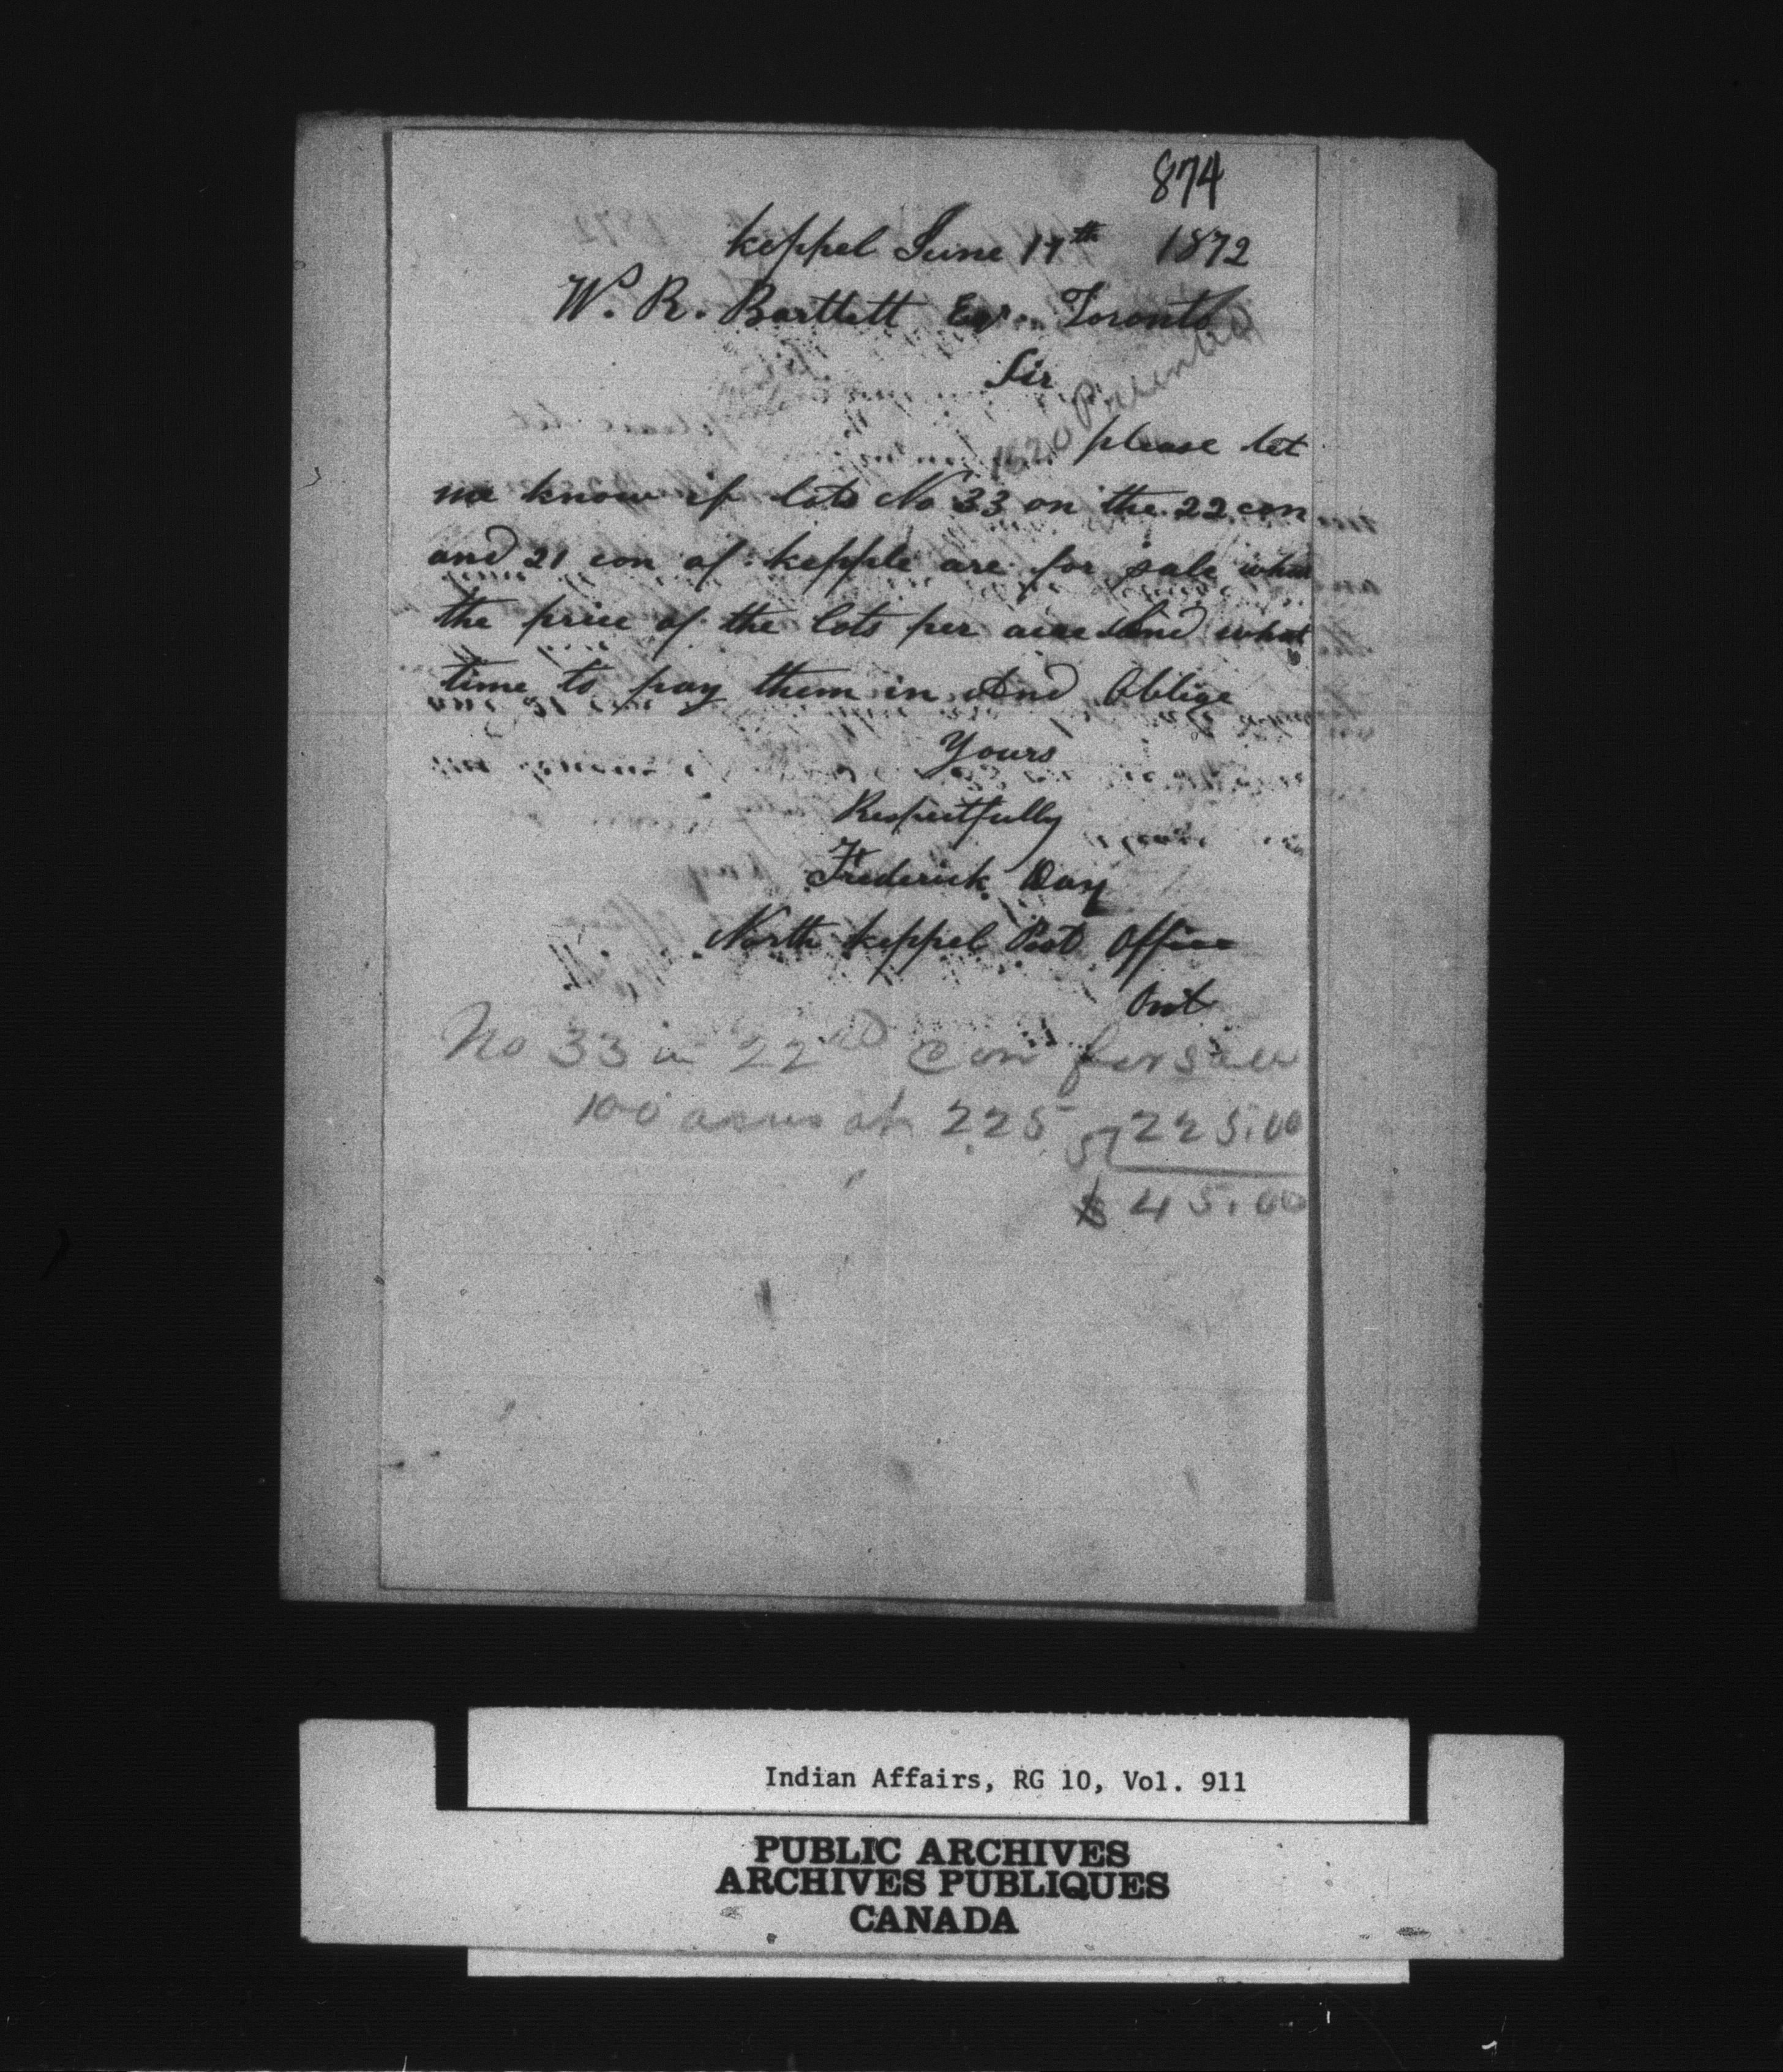 874
Keppel June 17th 1872
W. R. Bartlett Esqr. Toronto
Sir
please let
me know if lots No 33 on the 22 con
and 21 con of Kepple are for sale what
the price of the lots per acre And what
time to pay them in And Oblige
Yours
Respectfully
Frederick Day
North Keppel Post Office
Ont
No 33 in 22nd Con for sale
100 acres at 225
5) 225.00
$ 45.00
Indian Affairs, RG 10, Vol. 911
PUBLIC ARCHIVES
ARCHIVES PUBLIQUES
CANADA